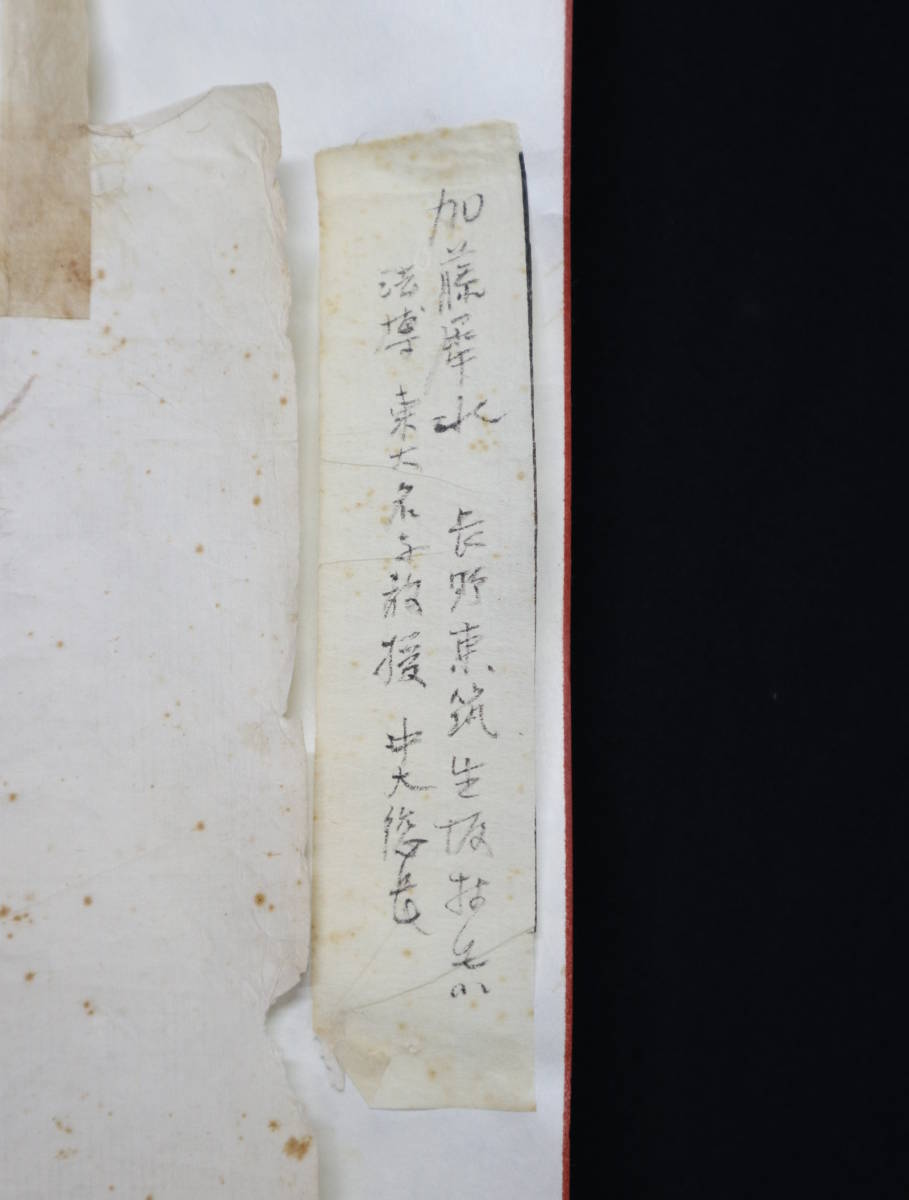 加藤犀水 長野東筑生坂村生
法博 東大名誉教授 中大総長